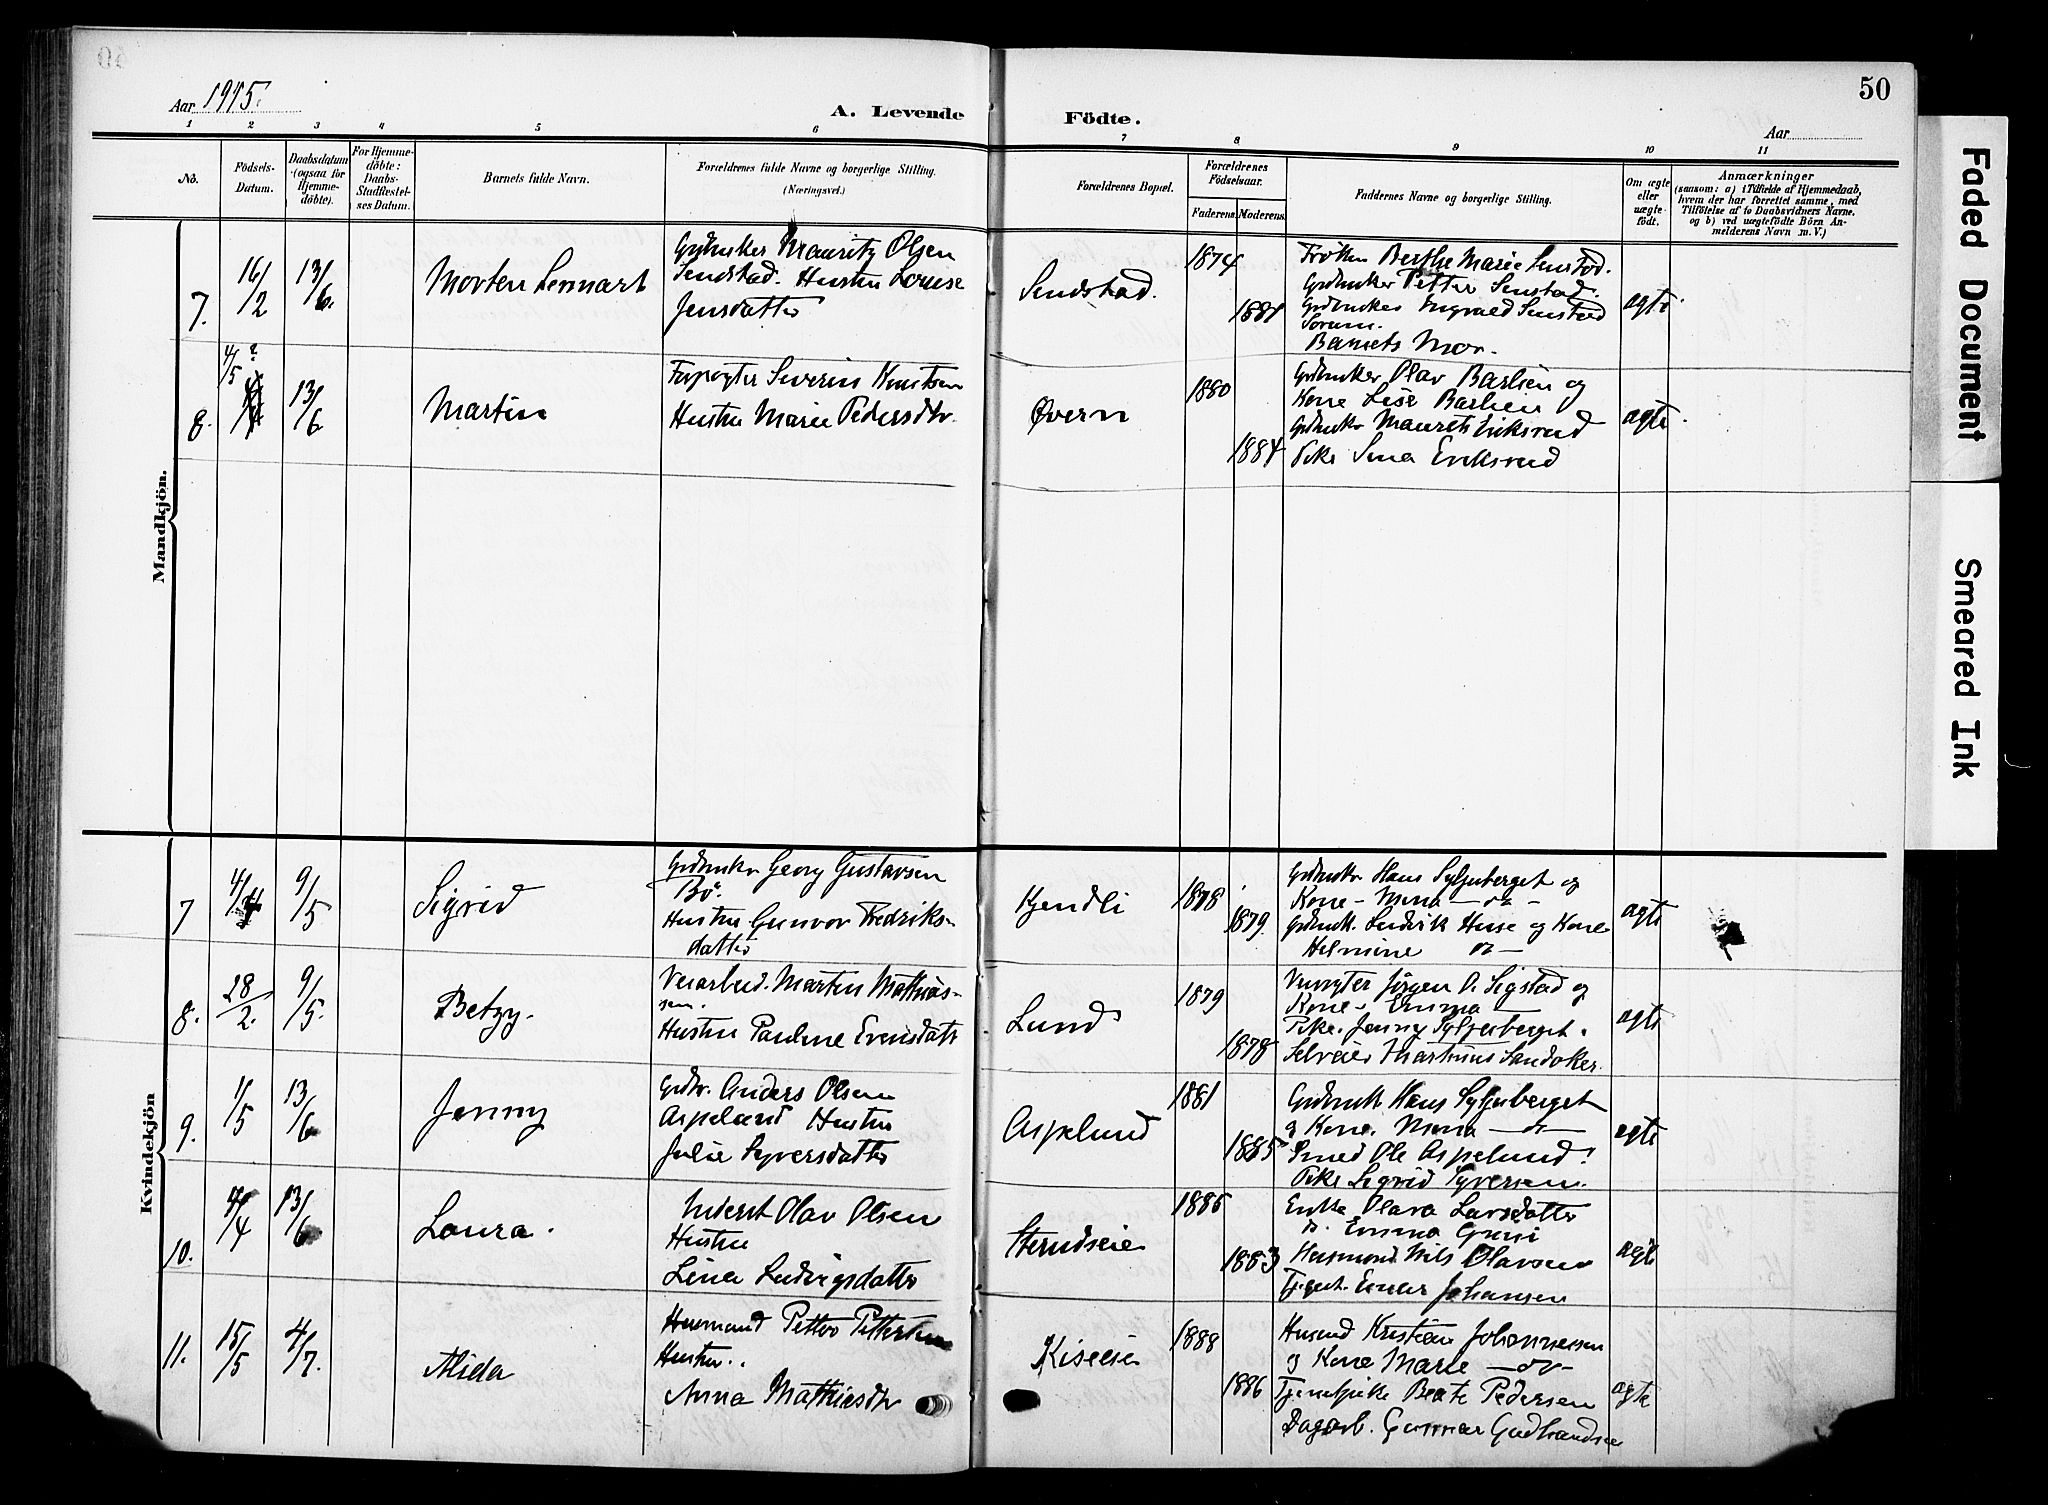 50
Aar 1915.
A. Levende
Födte.
Aar
1 2 3 4 5 6 7 8 9 10 11
No.
Födsels-
Datum.
Daabsdatum
(ogsaa for
Hjemme-
döbte).
For Hjemme-
döbte:
Daabs-
Stadfæstel-
ses Datum.
Barnets fulde Navn.
Forældrenes fulde Navne og borgerlige Stilling.
(Næringsvei.)
Forældrenes Bopæl.
Forældrenes
Födselsaar.
Faderens.
Moderens.
Faddernes Navne og borgerlige Stilling.
Om ægte
eller
uægte
födt.
Anmærkninger
(saasom: a) i Tilfælde af Hjemmedaab,
hvem der har forrettet samme, med
Tilföielse af to Daabsvidners Navne,
og b) ved uægtefödte Börn An-
melderens Navn m. V.)
Mandkjön.
7.
16/2
13/6.
Morten Lennart
Gdbruker Mauritz Olsen
Sendstad. Hustru Louise
Jensdatter
Sendstad.
1874
1881
Frøken Berthe Marie Senstad.
Gdbruker Petter Senstad.
Gdbruker Ingvald Senstad
Barnets Mor.
ægte
8.
4/5
13/6
Martin
Severin Knutsen
Hustru Marie Pedersdtr.
Øvern
1880
1884
Gdbruker Olav Barlien og
Kone Lise Barlien
Gdbruker Maurits Eriksrud
Pike Eriksrud
ægte
Kvindekjön
7
4/4
9/5
Sigrid
Gdbruker Georg Gustavsen
Bø.
Hustru Gunvor Fredriks-
datter
Kjendli
1878
1879.
Gdbruker Hans Syljuberget og
Kone - Mina - do -
Gdbruk. Ludvik Huse og Kone
Helmine do -
ægte
8.
28/2.
9/5.
Betzy.
Veiarbeid. Martin Mathias-
sen.
Hustru Pauline Evensdatr
Lund
1879
1878
Jørgen O. Sigstad og
Kone - Emma -
Pike. Jenny Syljuberget.
Selveier Martinus Sandaker.
ægte
9.
1/5
13/6
Jenny
Gdbr. Anders Olsen
Aspelund Hustru
Julie Syversdatter
Aspelund
1881
1885
Gdbruk Hans Syljuberget
og Kone. Mina - do -
Smed Ole Aspelund.
Pike Sigrid Syversen.
ægte
10.
4/4
13/6
Laura.
Inderst Olav Olsen
Hustru
Lina Ludvigsdatter
1886
1883
Enke Olava Larsdatter
Emma
Husmand Nils Olavsen
Tjgut. Einar Johansen
ægte
11.
15/5
4/7.
Alida
Husmand Petter Pettersen
Hustru.
Anna Mathiasdtr
Kiseeie
1888
1886
Husmd Kristian Johannessen
og Kone Marie - do -
Tjenestpike Beate Pedersen
Dagarb. Gunnar Gudbrandsen
ægte
Faded Document
Smeared Ink